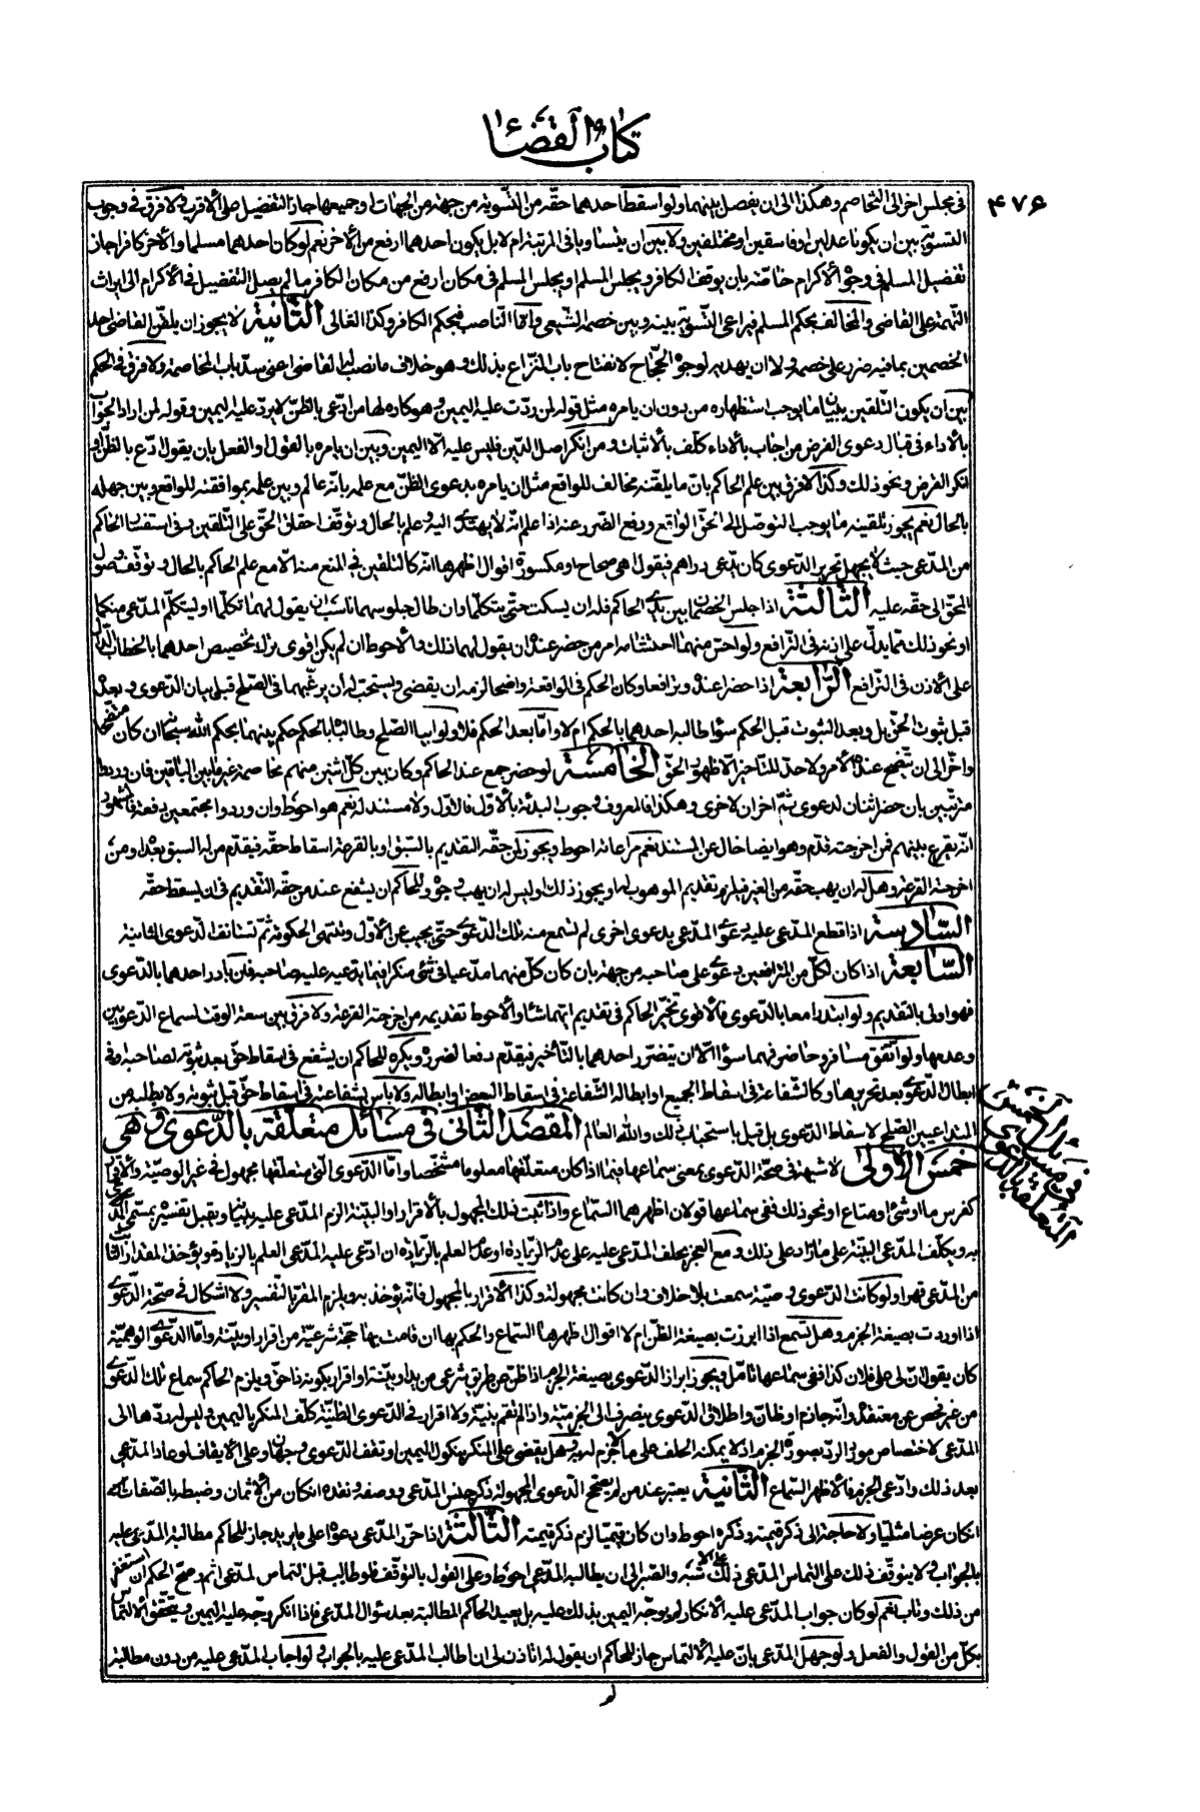 كتاب القضاء
۴۷۶
في مجلس اخر الى التخاصم وهكذا الى ان يفصل بينهما ولو اسقط احدهما حقّه من التّسوية من جهة من الجهات او جميعها جاز التفضيل على الأقرب ولا فرق في وجوب
التسوية بين ان يكونا عدلين او فاسقين او مختلفين ولا بين ان يتساويا في المرتبة ام لا بل يكون احدهما ارفع من الأخر نعم لو كان احدهما مسلما والأخر كافرا جاز
تفضيل المسلم في وجوه الأكرام خاصّة بان يوقف الكافر ويجلس المسلم او يجلس المسلم في مكان ارفع من مكان الكافر ما لم يصل التفضيل في الأكرام الى ايراث
التهمة على القاضي والمخالف بحكم المسلم فيراعى التّسوية بينه وبين خصمه الشّيعي وامّا النّاصب فبحكم الكافر وكذا الغالى الثّانية لا يجوز ان يلقّن القاضي احد
الخصمين بما فيه ضرر على خصمه ولا ان يهديه لوجوه الحجّاج لانفتاح باب النّزاع بذلك وهو خلاف ما نصب له القاضي اعنى سدّ باب المخاصمة ولا فرق في الحكم
بين ان يكون التلقين ببيان ما يوجب استظهاره من دون ان يامره مثل قوله لمن ردّت عليه اليمين وهو كاره لها من ادّعى بالظنّ لا يردّ عليه اليمين وقوله لمن اراد الجواب
بالأداء في قبال دعوى القرض من اجاب بالأداء كلّف بالأثبات ومن انكر اصل الدّين فليس عليه الّا اليمين وبين ان يامره بالقول او الفعل بان يقول ادّع بالظنّ او
انكر القرض ونحو ذلك وكذا لا فرق بين علم الحاكم بانّ ما يلقّنه مخالف للواقع مثل ان يامره بدعوى الظنّ مع علمه بانّه عالم وبين علمه بموافقته للواقع وبين جهله
بالحال نعم يجوز تلقينه ما يوجب التوصّل الى الحقّ الواقع ودفع الضّرر عنه اذا علم انّه لا يهتدى اليه وعلم بالحال وتوقّف احقاق الحقّ على التّلقين وفي استفسار الحاكم
من المدّعى حيث لا يجهل تحرير الدّعوى كان يدّعى دراهم فيقول اهي صحاح او مكسورة اقوال اظهرها انّه كالتلقين في المنع منه الّا مع علم الحاكم بالحال وتوقّف وصول
المحقّ الى حقّه عليه الثّالثة اذا جلس الخصمان بين يدى الحاكم فله ان يسكت حتّى يتكلّما وان طال جلوسهما ناسب ان يقول لهما تكلّما او ليتكلّم المدّعى منكما
او نحو ذلك ممّا يدلّ على اذنه في التّرافع ولو احسّ منهما احتشامه امر من حضر عنده ان يقول لهما ذلك والأحوط ان لم يكن اقوى ترك تخصيص احدهما بالخطاب الدّال
على الأذن في التّرافع الرّابعة اذا حضرا عنده وترافعا وكان الحكم في الواقعة واضحا لزمه ان يقضى ويستحبّ له ان يرغّبهما في الصّلح قبل بيان الدّعوى وبعده
قبل ثبوت الحقّ بل وبعد الثبوت قبل الحكم سواء طالبه احدهما بالحكم ام لا وامّا بعد الحكم فلا ولو ابيا الصّلح وطالبا بالحكم حكم بينهما بحكم الله سبحانه ان كان متّضحا
واخّر الى ان يتّضح عنده الأمر ولا حدّ للتّاخير الّا ظهور الحقّ الخامسة لو حضر جمع عند الحاكم وكان بين كلّ اثنين منهم مخاصمة غير ما بين الباقين فان وردوا
مترتّبين بان حضر اثنان لدعوى ثمّ اخران لاخرى وهكذا فالمعروف وجوب البدئة بالأوّل فالأوّل ولا مستند له نعم هو احوط وان وردوا مجتمعين دفعة فالمشهور
انّه يقرع بينهم فمن اخرجته قدّم وهو ايضا خال عن المستند نعم مراعاته احوط ويجوز لمن حقّه التقديم بالسّبق او بالقرعة اسقاط حقّه فيقدّم من له السبق بعده او من
اخرجته القرعة وهل له ان يهب حقّه من الغير فيلزم تقديم الموهوب له او يجوز ذلك او ليس له ان يهب وجوه وللحاكم ان يشفع عند من حقّه التّقديم في ان يسقط حقّه
السّادسة اذا قطع المدّعى عليه دعوى المدّعى بدعوى اخرى لم تسمع منه تلك الدّعوى حتّى يجيب عن الأوّل وتنتهى الحكومة ثمّ تستانف الدّعوى الثّانية
السّابعة اذا كان لكلّ من المترافعين دعوى على صاحبه من جهة بان كان كلّ منهما مدّعيا في شئ منكرا فيما يدّعيه عليه صاحبه فمن بادر احدهما بالدّعوى
فهو اولى بالتقديم ولو ابتدرا معا بالدّعوى فالأقوى تخيّر الحاكم في تقديم ايّهما شاء والأحوط تقديمه من اخرجته القرعة ولا فرق بين سعة الوقت لسماع الدّعويين
وعدمها ولو اتّفق مسافر وحاضر فهما سواء الّا ان يتضرّر احدهما بالتّأخير فيقدّم دفعا لضرره ويكره للحاكم ان يشفع في اسقاط حقّ بعد ثبوته لصاحبه او في
ابطال الدّعوى بعد تحريرها وكالشّفاعة في اسقاط الجميع او ابطاله الشّفاعة في اسقاط البعض او ابطاله ولا بأس بشفاعته في اسقاط حقّ قبل ثبوته ولا بطلبه من
المتداعيين الصّلح لاسقاط الدّعوى بل قيل باستحباب ذلك والله العالم المقصد الثّانى في مسائل متعلّقة بالدّعوى وهى
في مسائل الخمس المتعلّقة بالدّعوى
خمس الأولى لا شبهة في صحّة الدّعوى بمعنى سماعها فيما اذا كان متعلّقها معلوما مشخّصا وامّا الدّعوى الّتى متعلّقها مجهول في غير الوصيّة والأقرار
كفرس ما او شئ او متاع او نحو ذلك ففى سماعها قولان اظهرهما السّماع واذا ثبت ذلك المجهول بالأقرار او البيّنة الزم المدّعى عليه ببيانه ويقبل تفسيره بمسمّى المدّعى
به ويكلّف المدّعى البيّنة على ما زاد على ذلك ومع العجز يحلف المدّعى عليه على عدم الزّيادة او عدم العلم بالزّيادة ان ادّعى عليه المدّعى العلم بالزّيادة ويؤخذ المقدار الثّابت
من المدّعى قهرا ولو كانت الدّعوى وصيّة سمعت بلا خلاف وان كانت مجهولة وكذا الأقرار بالمجهول فانّه يؤخذ به ويلزم المقرّ بالتّفسير ولا اشكال في صحّة الدّعوى
اذا اوردت بصيغة الجزم وهل تسمع اذا ابرزت بصيغة الظّن ام لا اقوال اظهرها السّماع والحكم بها ان قامت بها حجّة شرعيّة من اقرار او بيّنة وامّا الدّعوى الوهميّة
كان يقول انّ لى على فلان كذا ففى سماعها تامّل ويجوز ابراز الدّعوى بصيغة الجزم اذا ظنّ عن طريق شرعى من يد او بيّنة او اقرار بكونه ذا حقّ ويلزم الحاكم سماع تلك الدّعوى
من غير فحص عن معتقده وانّه جازم او ظانّ واطلاق الدّعوى ينصرف الى الجزميّة واذا لم تقم بيّنة ولا اقرار في الدّعوى الظنّيّة كلّف المنكر باليمين وليس له ردّها الى
المدّعى لاختصاص مورد الردّ بصورة الجزم اذ لا يمكنه الحلف على ما لا جزم له به وهل يقضى على المنكر بنكول اليمين او تقف الدّعوى وجهان وعلى الأيقاف لو عاد المدّعى
بعد ذلك وادّعى الجزم فالأظهر السّماع الثّانية يعتبر عند من لم يصحّح الدّعوى المجهولة ذكر جنس المدّعى ووصفه ونقده ان كان من الأثمان وضبطه بالصّفات
ان كان عرضا مثليّا ولا حاجة الى ذكر قيمته وذكره احوط وان كان قيميّا لزم ذكر قيمته الثّالثة اذا حرّر المدّعى دعواه على ما يريد جاز للحاكم مطالبة المدّعى عليه
بالجواب ولا يتوقّف ذلك على التماس المدّعى ذلك على الأشبه والصّبر الى ان يطالبه المدّعى احوط وعلى القول بالتوقّف فلو طالب قبل التماس المدّعى اثم وصحّ الحكم ان استغفر
من ذلك وتاب نعم لو كان جواب المدّعى عليه الأنكار لم يوجّه اليمين بذلك عليه بل يعيد الحاكم المطالبة بعد سؤال المدّعى فاذا انكر وجّه عليه اليمين ويتحقّق الألتماس
بكلّ من القول والفعل ولو جهل المدّعى بانّ عليه الألتماس جاز للحاكم ان يقول له اتاذن لى ان اطالب المدّعى عليه بالجواب ولو اجاب المدّعى عليه من دون مطالبة
لو